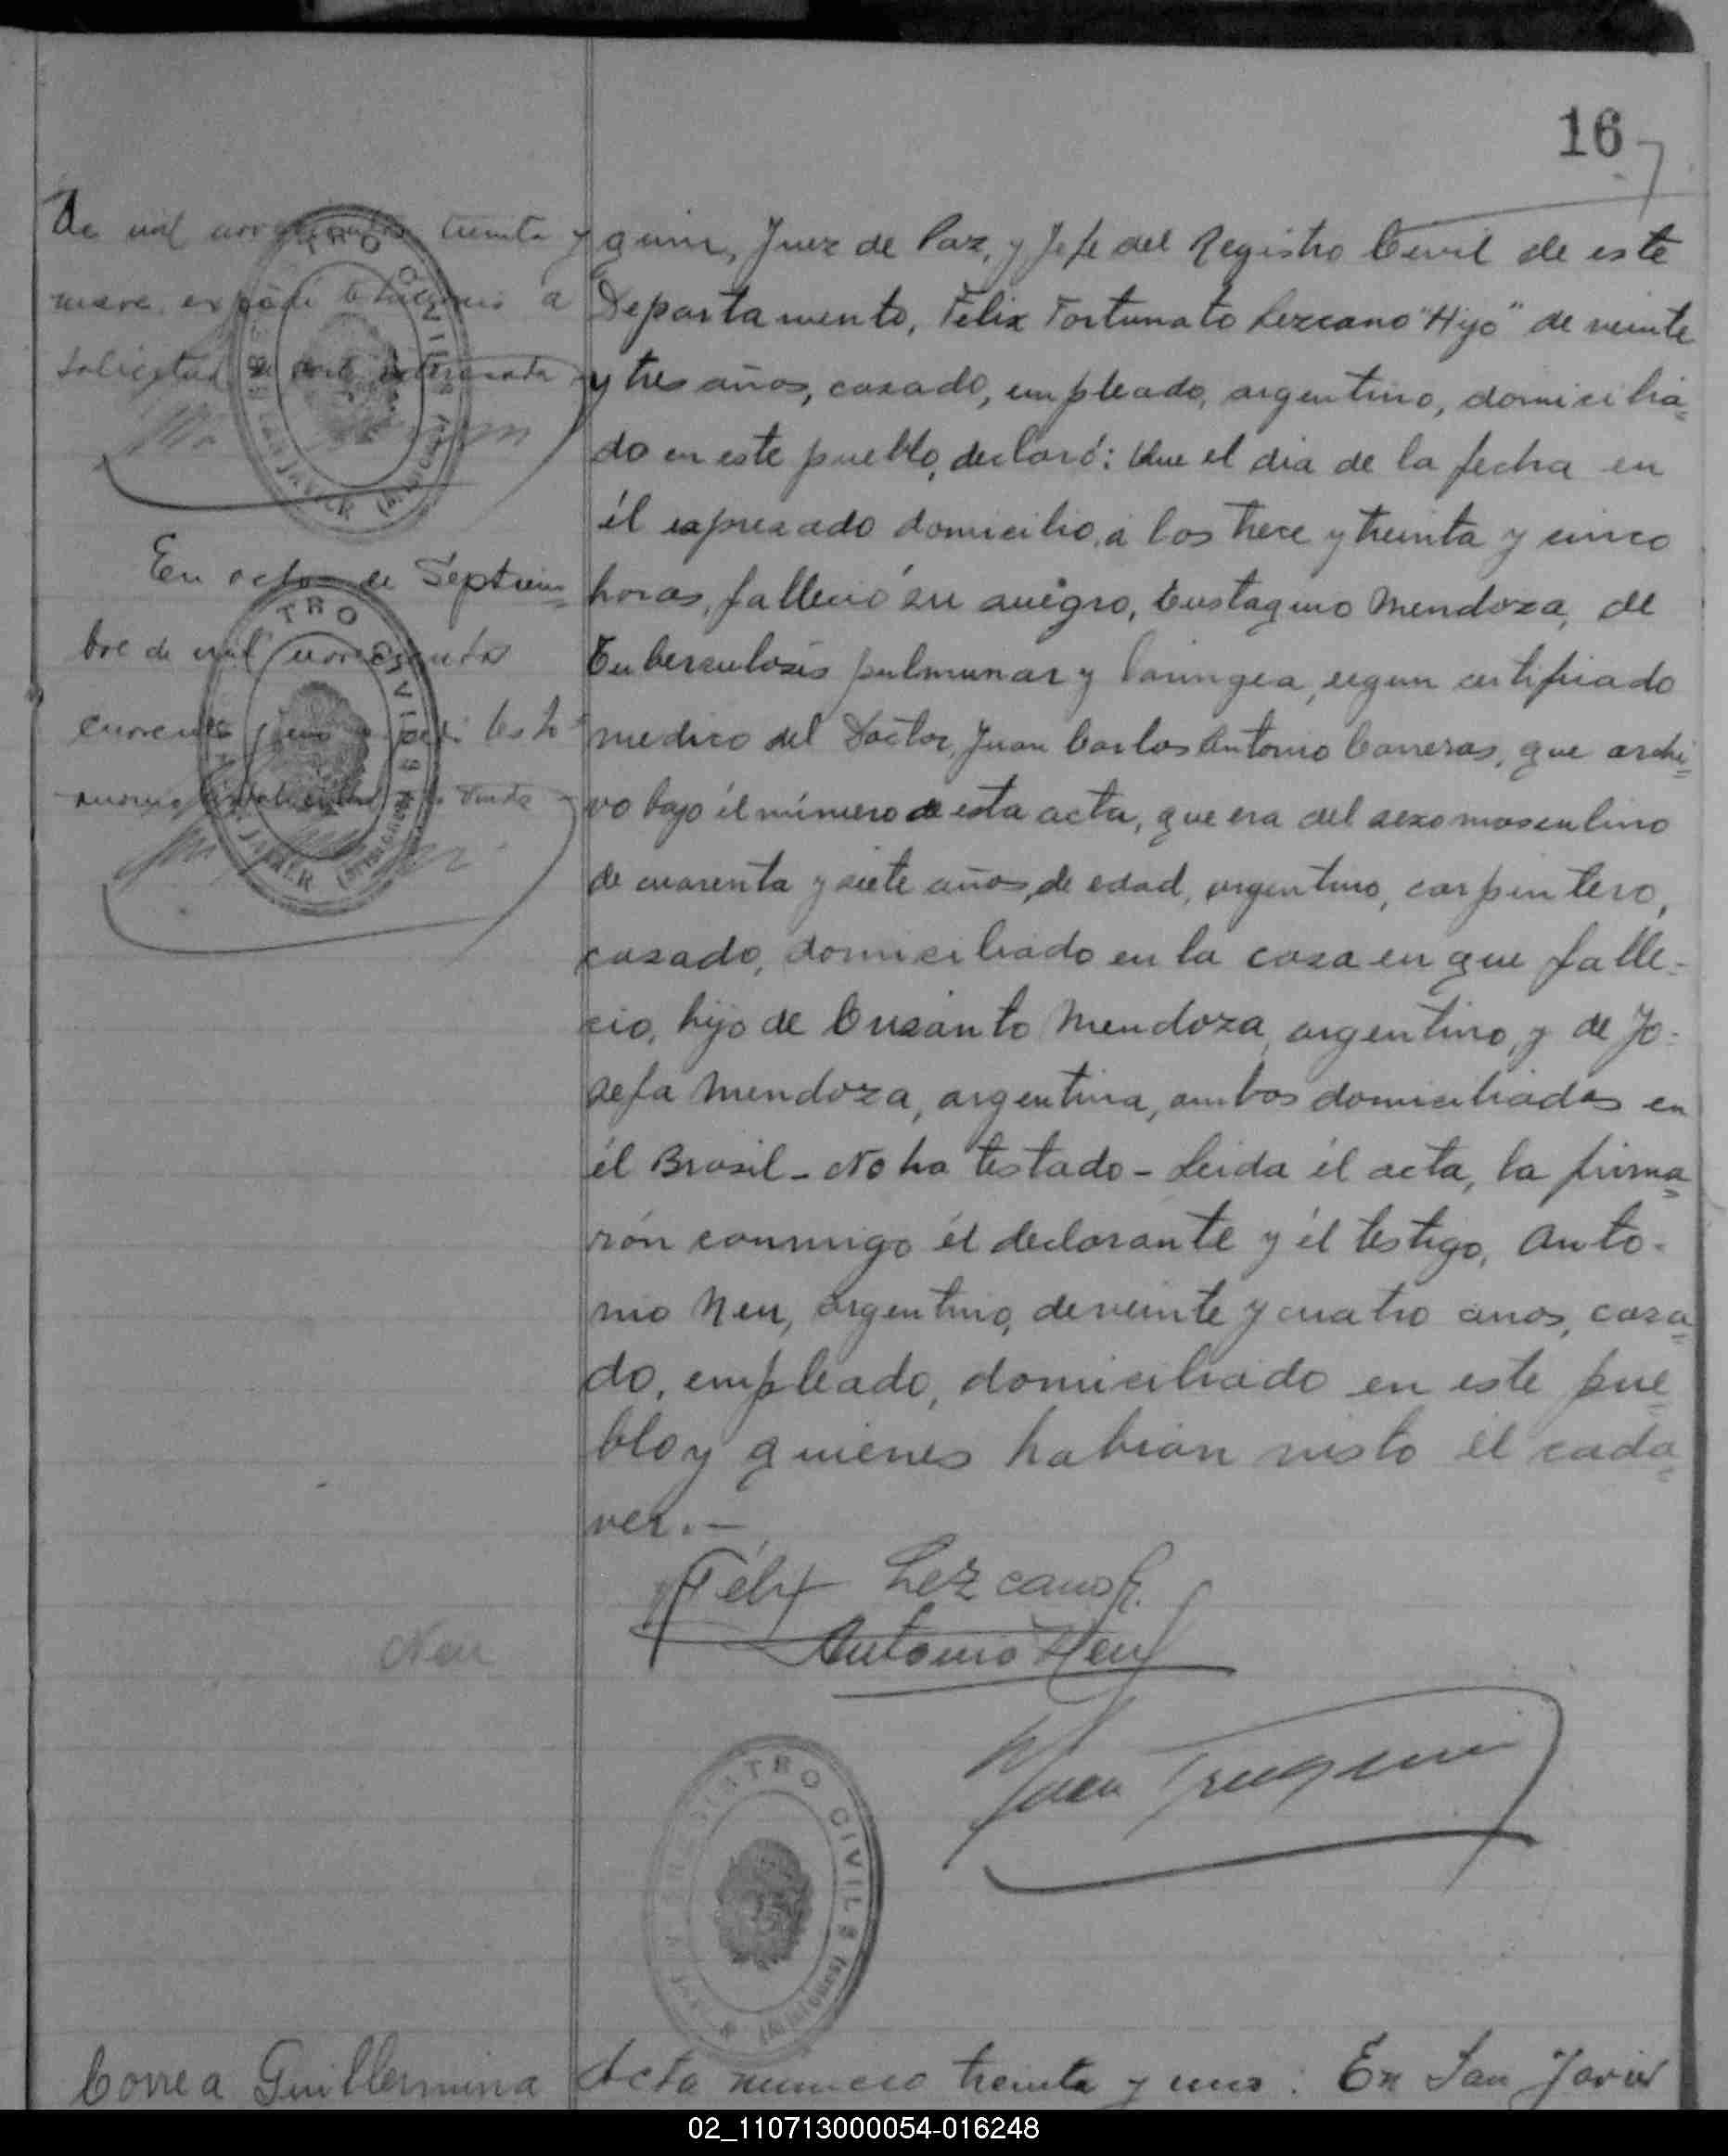 16
De mil novecientos treinta y
nueve, expedi testimonio a
solicitud de parte interesada
En ocho de Septiem=
bre de mil novecientos
cuarenta y uno expedi testi
monio
guini, Juez de Paz, y Jefe del Registro Civil de este
Departamento, Felix Fortunato Lezcano "Hijo" de veinte
y tres años, casado, empleado, argentino, domicilia=
do en este pueblo, declaró: Que el dia de la fecha en
él expresado domicilio, á los trece y treinta y cinco
horas, falleció su suegro, Eustaquio Mendoza, de
Tuberculosis pulmunar y laringea, segun certificado
medico del Doctor, Juan Carlos Antonio Carreras, que archi=
vo bajo él número de esta acta, que era del sexo masculino
de cuarenta y siete años, de edad, argentino, carpintero,
casado, domiciliado en la casa en que falle-
cio, hijo de Crisanto Mendoza, argentino, y de Jo-
sefa Mendoza, argentina, ambos domiciliados en
él Brasil - No ha testado - Leida él acta, la firma=
rón conmigo él declarante y él testigo, Anto-
nio Neu, argentino, de veinte y cuatro anos, casa=
do, empleado, domiciliado en este pue=
blo y quienes habian visto él cada=
ver. -
Félix Lezcano h.
Antonio Neu
Neu
REGISTRO CIVIL
Correa Guillermina
Acta numero treinta y uno: En San Javier
02_110713000054-016248